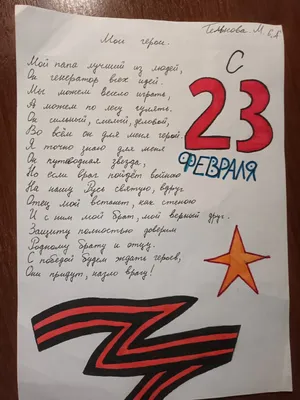 Тельнова. М 6„А"
Мои герои.
Мой папа лучший из людей,
Он генератор всех идей.
Мы можем весело играть
А можем по лесу гулять.
Он сильный, смелый, деловой,
Во всём он для меня герой.
Я точно знаю для меня
Он путеводная звезда,
Но если враг пойдёт войною
На нашу Русь святую, вдруг
Отец мой встанет, как стеною
И с ним мой брат, мой верный друг.
Защиту полностью доверим
Родному брату и отцу.
С победой будем ждать героев,
Они придут, назло врагу!
С
23
ФЕВРАЛЯ